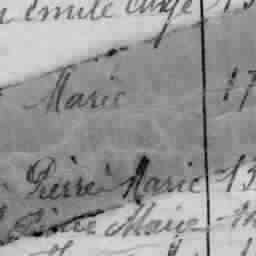 Emile Ange 13
Marie 17
Pierre Marie 13
Pierre Marie